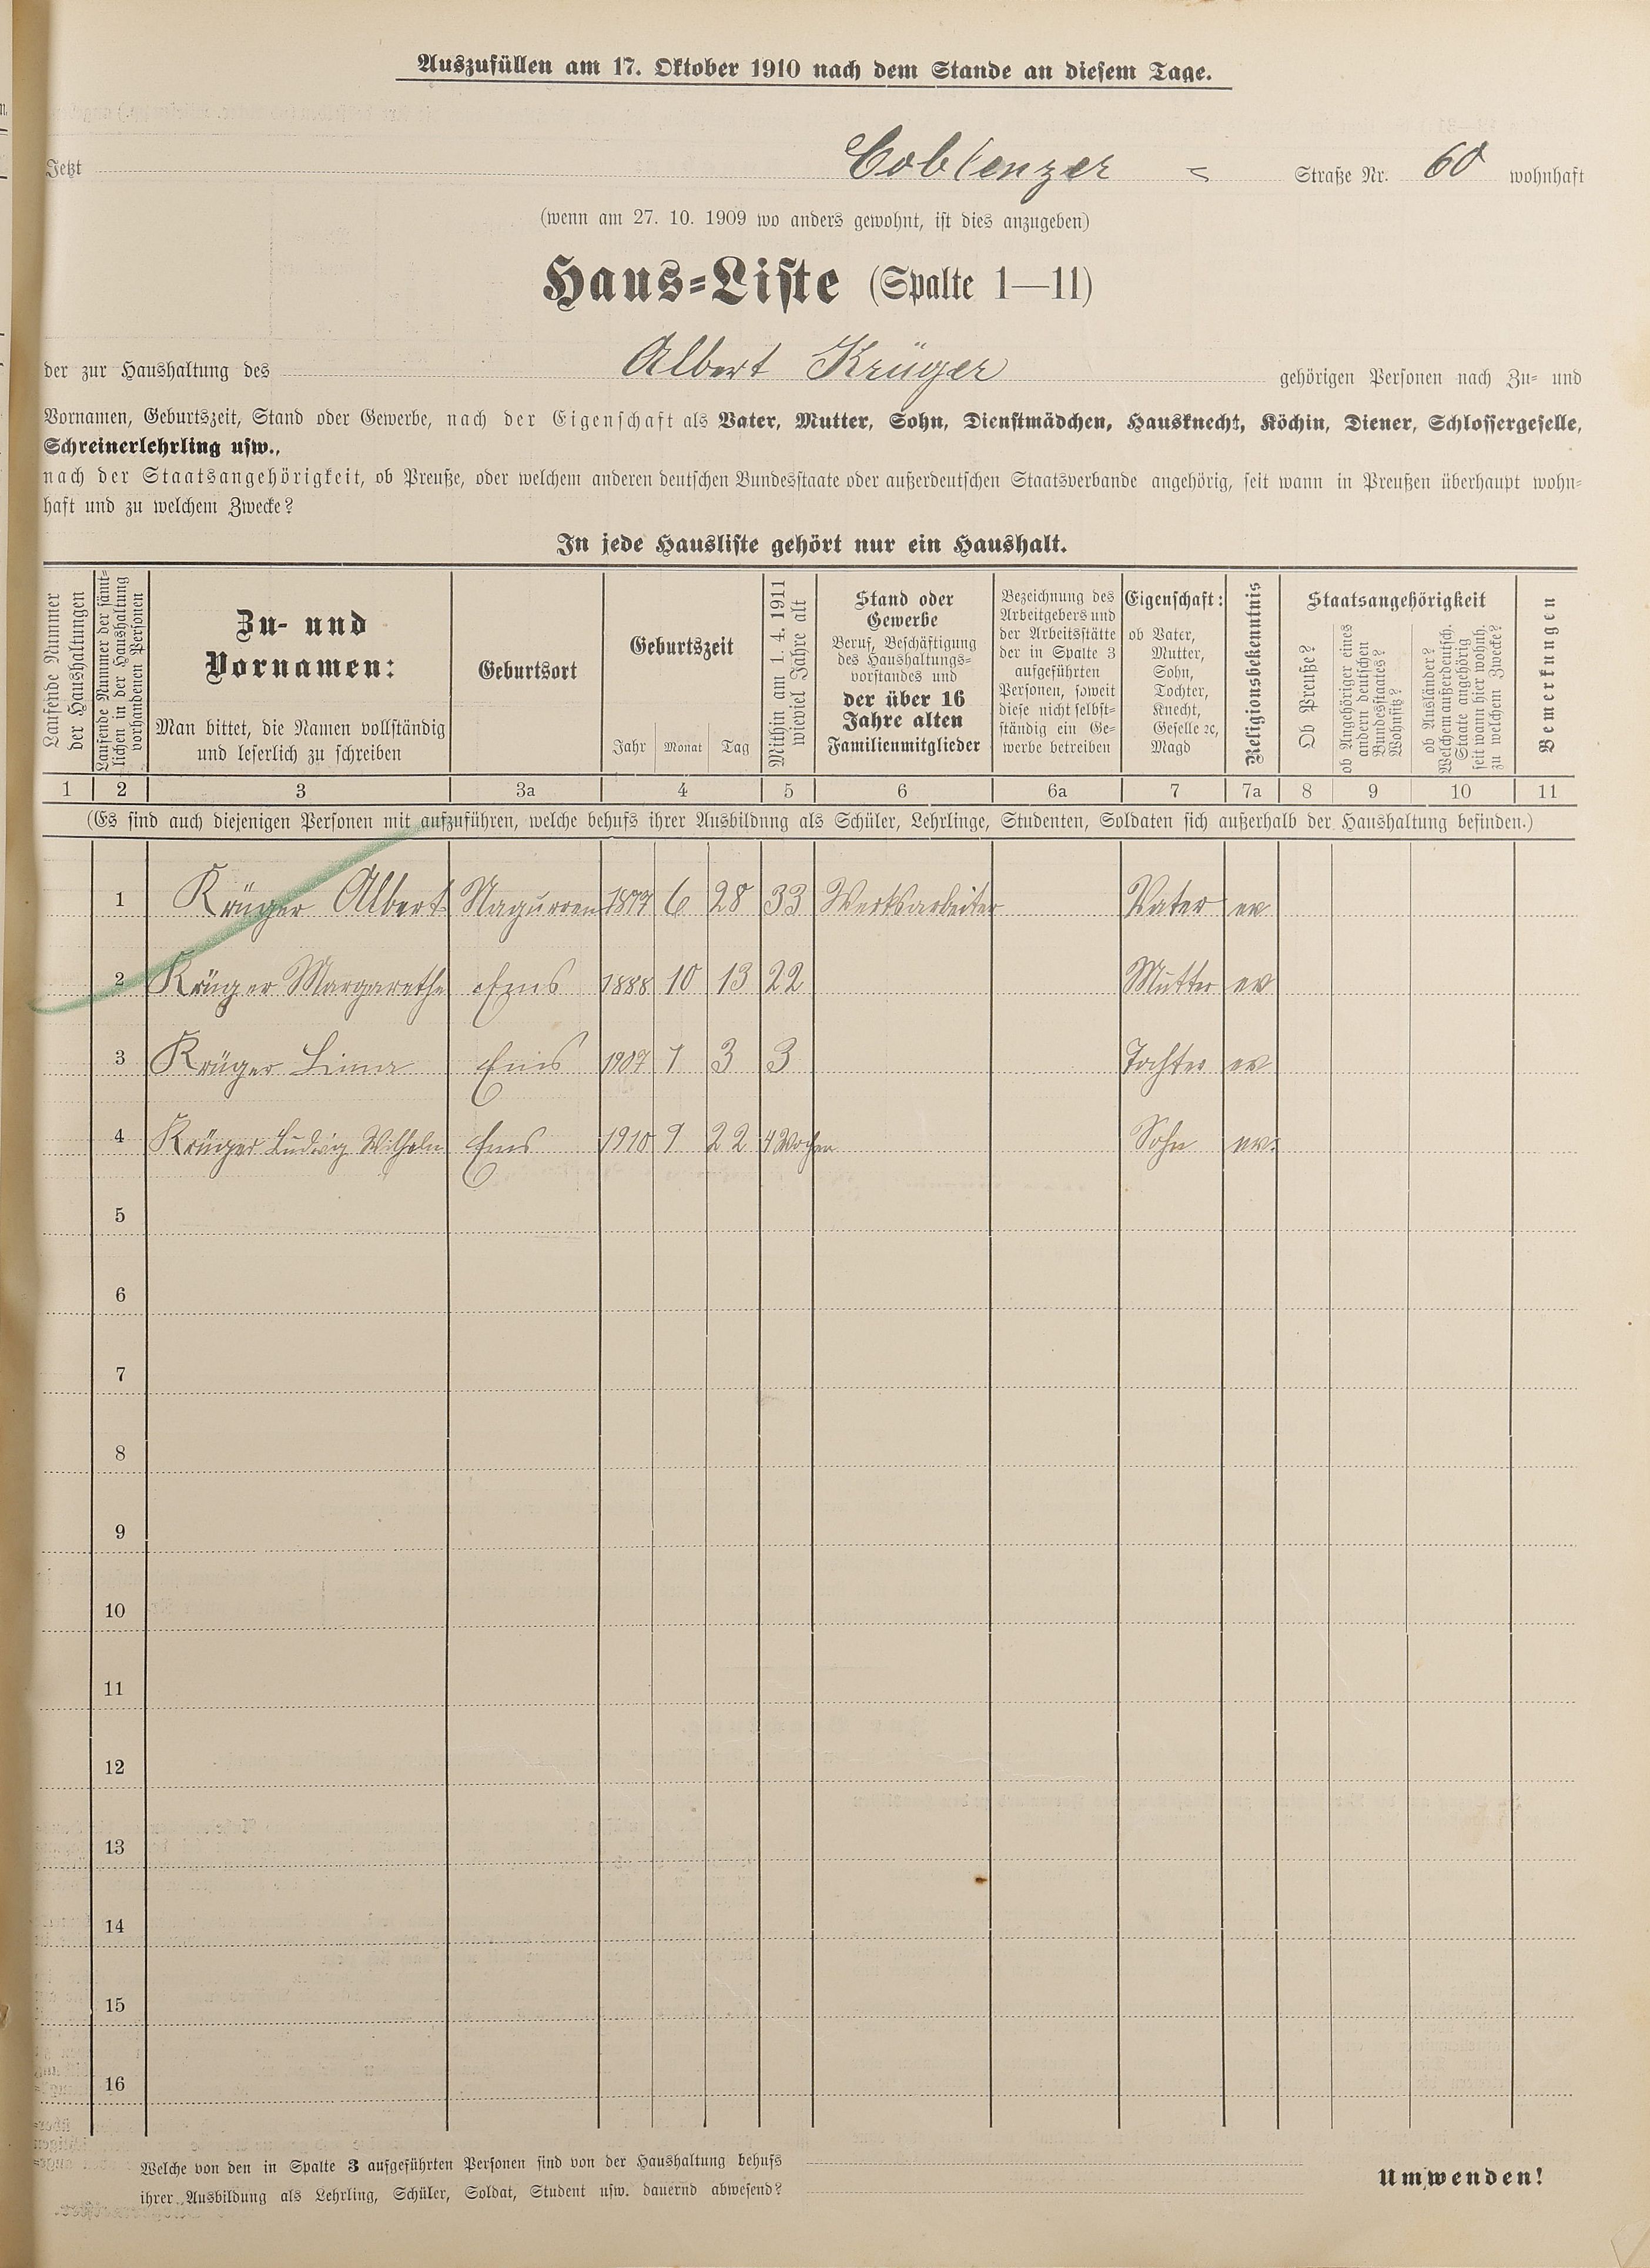 Auszufüllen am 17. Oktober 1910 nach dem Stande an diesem Tage.
Jetzt Coblenzer = Straße Nr. 60 wohnhaft
(wenn am 27. 10. 1909 wo anders gewohnt, ist dies anzugeben)
Haus-Liste (Spalte 1—11)
der zur Haushaltung des Albert Krüger gehörigen Personen nach Zu- und
Vornamen, Geburtszeit, Stand oder Gewerbe, nach der Eigenschaft als Vater, Mutter, Sohn, Dienstmädchen, Hausknecht, Köchin, Diener, Schlossergeselle,
Schreinerlehrling usw.,
nach der Staatsangehörigkeit, ob Preuße, oder welchem anderen deutschen Bundesstaate oder außerdeutschen Staatsverbande angehörig, seit wann in Preußen überhaupt wohn-
haft und zu welchem Zwecke?
In jede Hausliste gehört nur ein Haushalt.
Laufende Nummer
der Haushaltungen
Laufende Nummer der sämt-
lichen in der Haushaltung
vorhandenen Personen
Zu- und
Vornamen:
Man bittet, die Namen vollständig
und leserlich zu schreiben
Geburtsort
Geburtszeit
Jahr Monat Tag
Mithin am 1. 4. 1911
wieviel Jahre alt
Stand oder
Gewerbe
Beruf, Beschäftigung
des Haushaltungs-
vorstandes und
der über 16
Jahre alten
Familienmitglieder
Bezeichnung des
Arbeitgebers und
der Arbeitsstätte
der in Spalte 3
aufgeführten
Personen, soweit
diese nicht selbst-
ständig ein Ge-
werbe betreiben
Eigenschaft:
ob Vater,
Mutter,
Sohn,
Tochter,
Knecht,
Geselle ꝛc,
Magd
Religionsbekenntnis
Staatsangehörigkeit
Ob Preuße?
ob Angehöriger eines
andern deutschen
Bundesstaates?
Wohnsitz?
ob Ausländer?
Welchem außerdeutsch.
Staate angehörig
seit wann hier wohnh.
zu welchem Zwecke?
Bemerkungen
1 2 3 3a 4 5 6 6a 7 7a 8 9 10 11
(Es sind auch diejenigen Personen mit aufzuführen, welche behufs ihrer Ausbildung als Schüler, Lehrlinge, Studenten, Soldaten sich außerhalb der Haushaltung befinden.)
1 Krüger Albert Nagurren 1877 6 28 33 Werksarbeiter Vater ev
2 Krüger Margarethe Ems 1888 10 13 22 Mutter ev
3 Krüger Lina Ems 1907 7 3 3 Tochter ev
4 Krüger Ludwig Wilhelm Ems 1910 9 22 4 Wochen Sohn ev.
5
6
7
8
9
10
11
12
13
14
15
16
Welche von den in Spalte 3 aufgeführten Personen sind von der Haushaltung behufs
ihrer Ausbildung als Lehrling, Schüler, Soldat, Student usw. dauernd abwesend?
Umwenden!